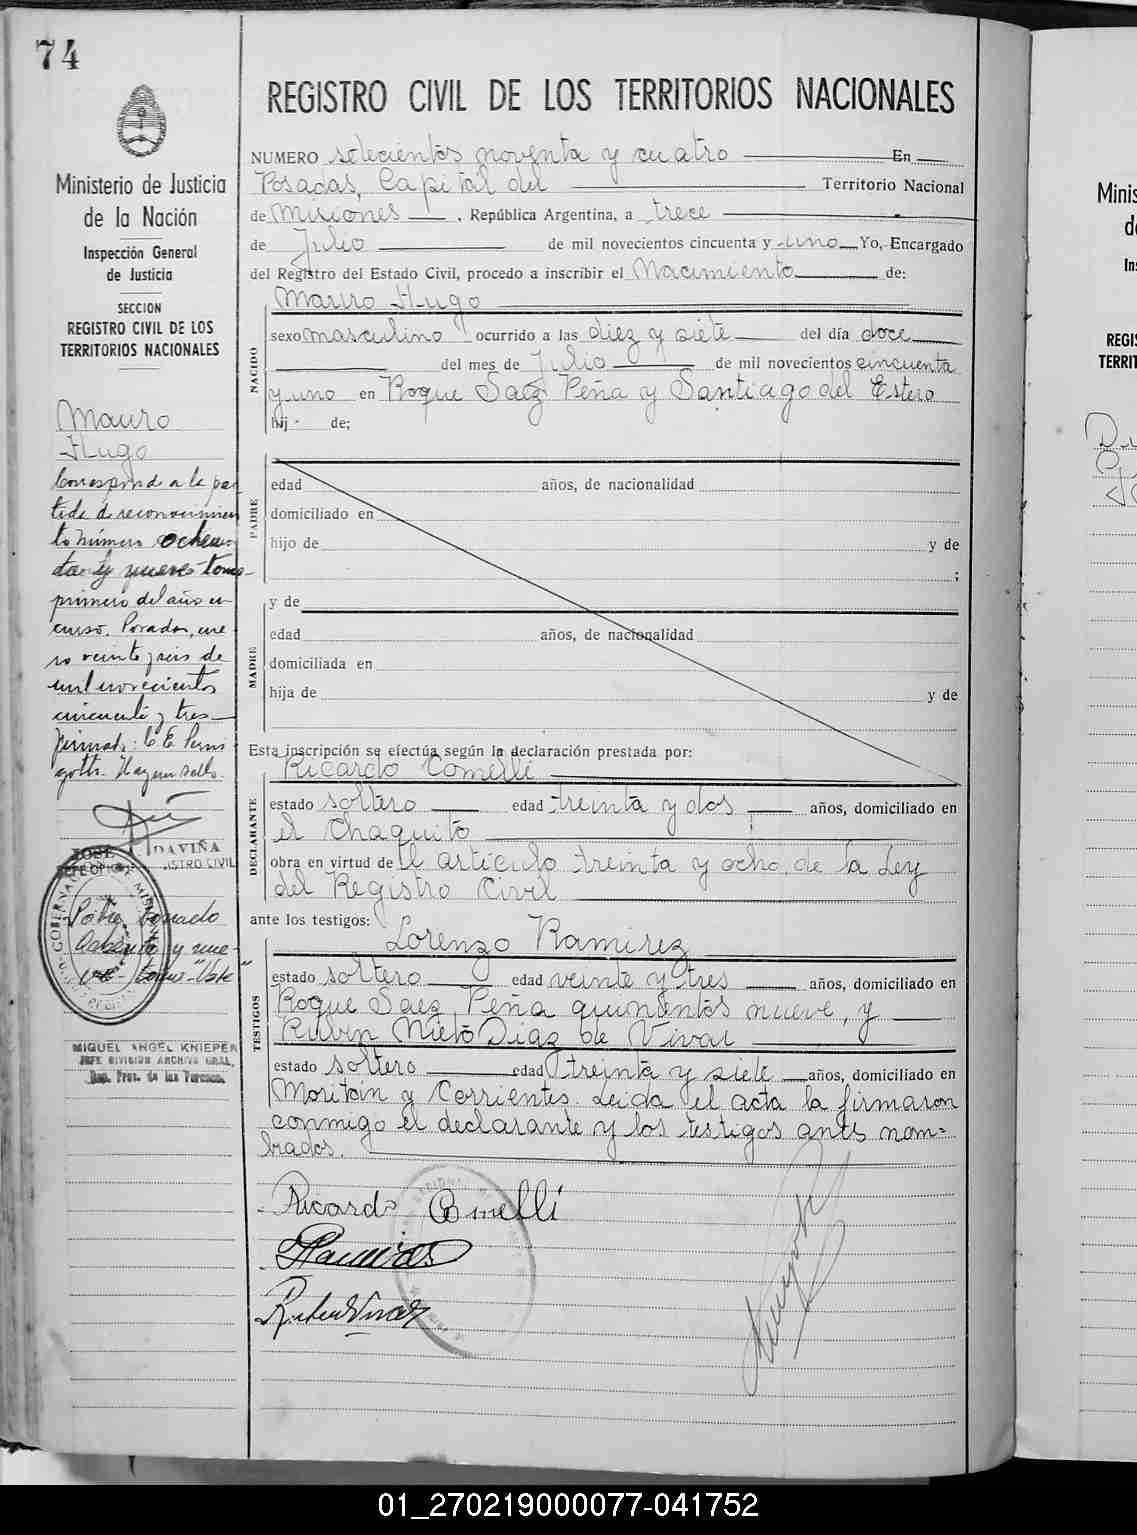 74
REGISTRO CIVIL DE LOS TERRITORIOS NACIONALES
Ministerio de Justicia
de la Nación
Inspección General
de Justicia
SECCION
REGISTRO CIVIL DE LOS
TERRITORIOS NACIONALES
Mauro
Hugo
Corresponde a la par
tida de reconocimien
to número ochen
ta y nueve tomo
primero del año en
curso. Posadas, ene
ro veinte y seis de
mil novecientos
cincuenta y tres
firmado: C. E.
Hay un sello.
JOSE DAVIÑA
JEFE OFIC REGISTRO CIVIL
GOBERNACION MISIONES
ochenta y nue-
ve- tomo
MIGUEL ANGEL KNIEPER
JEFE DIVISION ARCHIVO GRAL.
Reg. Prov. de las Personas
NUMERO setecientos noventa y cuatro En
Posadas, Capital del Territorio Nacional
de Misiones , República Argentina, a trece
de Julio de mil novecientos cincuenta y uno Yo, Encargado
del Registro del Estado Civil, procedo a inscribir el Nacimiento de:
Mauro Hugo
NACIDO
sexo masculino ocurrido a las diez y siete del día doce
del mes de Julio de mil novecientos cincuenta
y uno en Roque Saez Peña y Santiago del Estero
hij de;
PADRE
edad años, de nacionalidad
domiciliado en
hijo de y de
;
y de
MADRE
edad años, de nacionalidad
domiciliada en
hija de y de
Esta inscripción se efectúa según la declaración prestada por:
Ricardo Comelli
DECLARANTE
estado soltero edad treinta y dos años, domiciliado en
el Chaquito
obra en virtud de el artículo treinta y ocho de la Ley
del Registro Civil
ante los testigos:
Lorenzo Ramirez
TESTIGOS
estado soltero edad veinte y tres años, domiciliado en
Roque Saez Peña quinientos nueve, y
Rubin Nieto Diaz de Vivar
estado soltero edad treinta y siete años, domiciliado en
Moritán y Corrientes. Leida el acta la firmaron
conmigo el declarante y los testigos antes nom=
brados.
Ricardo Comelli
Ruben Vivar
01_270219000077-041752
Minis
de
Ins
REGIS
TERRIT